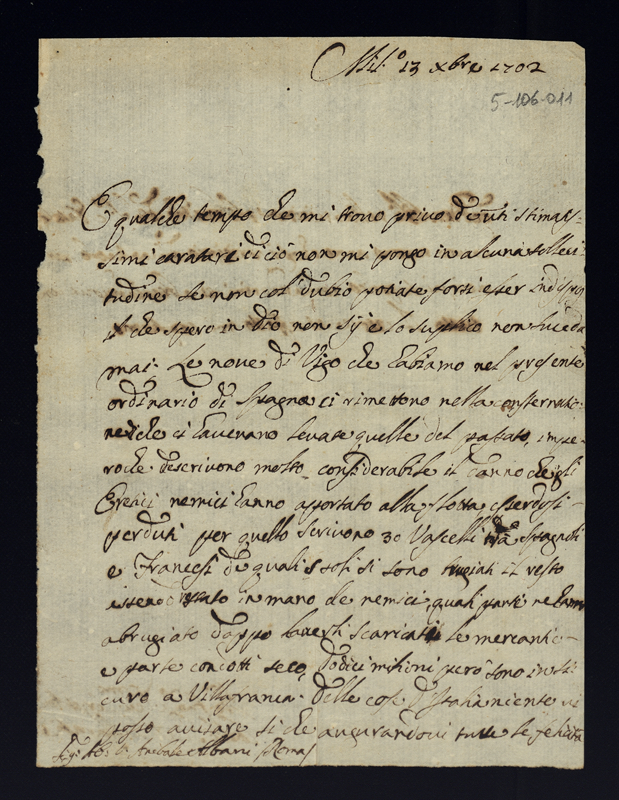 Mil.o 13 xbre 1702
5-106-011
E qualche tempo che mi trovo privo de vri stimatis-
simi carateri di ciò non mi pongo in alcuna solleci-
tudine se non col dubio potiate forsi esser indispo
il che spero in Dio non sij e lo suplico non suceda
mai. Le nove di Vigo che habiamo nel presente
ordinario di Spagna ci rimetono nella consternati-
ne che ci havevano levate quelle del passato, impe-
roche descrivono molto considerabile il danno che gli
Eretici nemici hanno apportato alla flotta essendosi
perduti per quello scrivono 30 Vascelli tra Spagnoli
e Francesi de quali 5 soli si sono brugiati il resto
essendo restato in mano de nemici, quali parte ne hanno
abrugiato doppo haverli scaricati le mercantie
e parte condotti seco, dodici milioni però sono in si-
curo a Villafranca. Delle cose d'Italia niente vi
posso avisare si che augurandovi tutte le felicita
Sig. Ab. D. Anibale Albani Roma